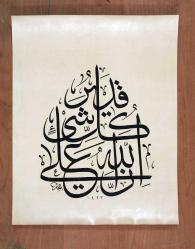 ان الله على
كل شيء
قدير